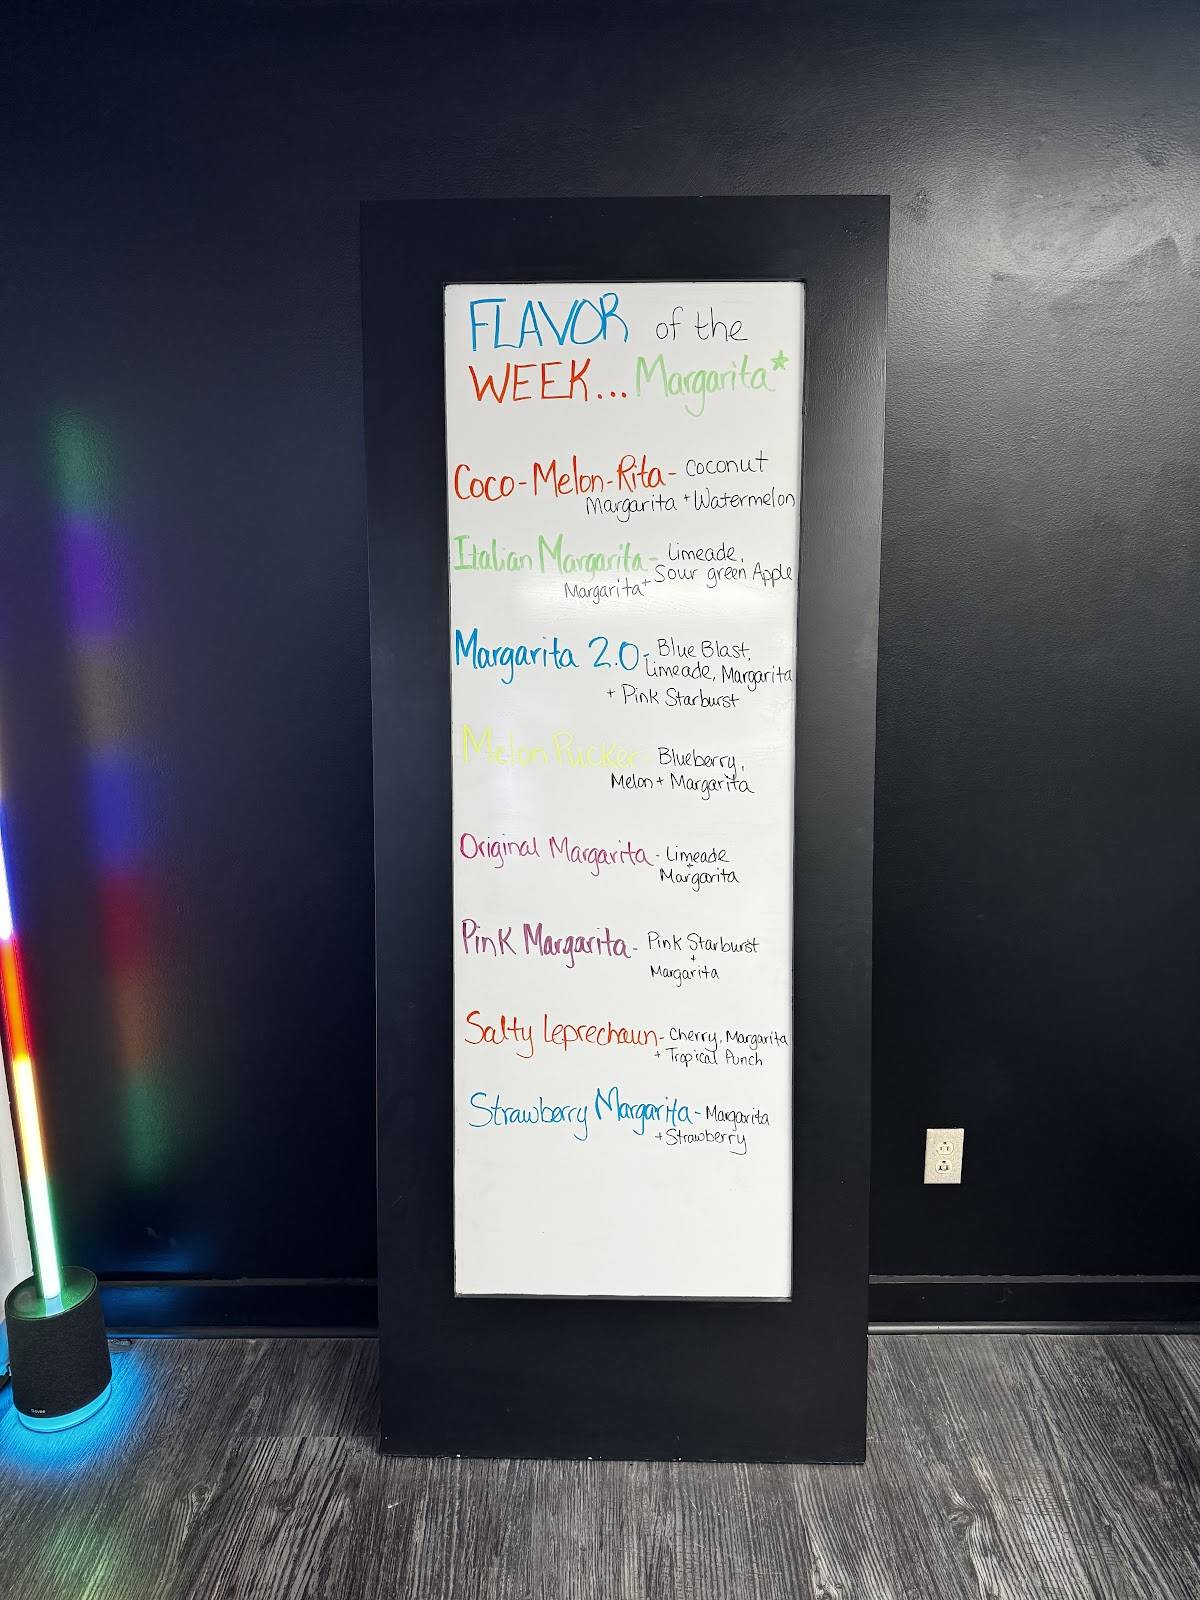 FLAVOR of the
WEEK... Margarita*
Coco-Melon-Rita- Coconut
Margarita + Watermelon
Italian Margarita- Limeade,
Sour green Apple
Margarita+
Margarita 2.0- Blue Blast,
Limeade, Margarita
+ Pink Starburst
Melon Pucker- Blueberry,
Melon + Margarita
Original Margarita- Limeade
+
Margarita
Pink Margarita- Pink Starburst
+
Margarita
Salty Leprechaun- Cherry, Margarita
+ Tropical Punch
Strawberry Margarita- Margarita
+ Strawberry
Govee